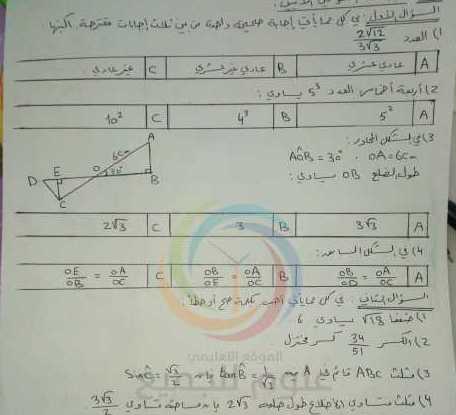 السؤال الأول: في كل مما يأتي إجابة صحيحة واحدة من بين ثلاث إجابات مقترحة، اكتبها
1) العدد 2√12 / 3√3
A عادي عشري B عادي غير عشري C غير عادي
2) أربعة أخماس العدد 5³ يساوي:
A 5² B 4³ C 10²
3) في الشكل المجاور:
AÔB = 30° ، OA = 6cm
طول الضلع OB يساوي:
A
6cm
30°
O
B
E
D
C
A 3√3 B 3 C 2√3
4) في الشكل السابق:
A OB/OD = OA/OC B OB/OE = OA/OC C OE/OB = OA/OC
السؤال الثاني: في كل مما يأتي أجب بكلمة صح أو خطأ:
1) ضعفا √18 يساوي 6
2) الكسر 34/51 كسر مختزل
3) مثلث ABC قائم في A فيه tan B̂ = 1/√3 فإن Sin Ĉ = √3/2
4) مثلث متساوي الأضلاع طول ضلعه 2√3 فإن مساحته تساوي 3√3/2
الموقع التعليمي
علوم للجميع